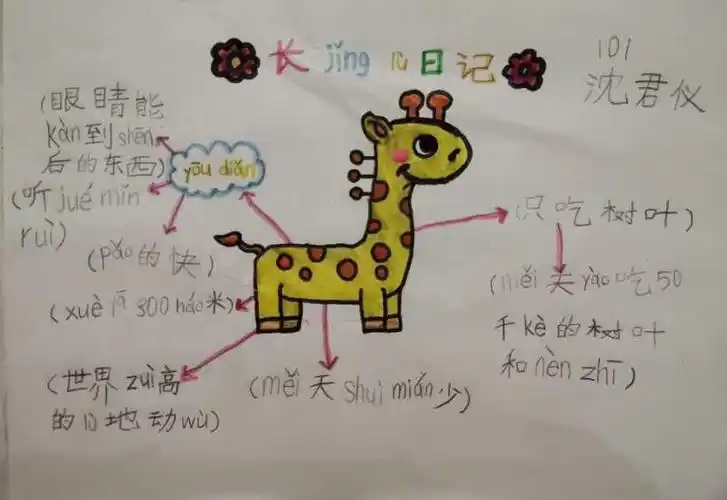 长jǐng儿日记
101
沈君仪
(眼睛能
kàn到shēn
后的东西)
yōu diǎn
(听jué mín
ruì)
(pǎo的快)
(xuè 压300háo米)
(世界zuì高
的日地动wù)
(měi天shuì mián少)
(只吃树叶)
(měi天yào吃50
千kè的树叶
和nèn zhī)